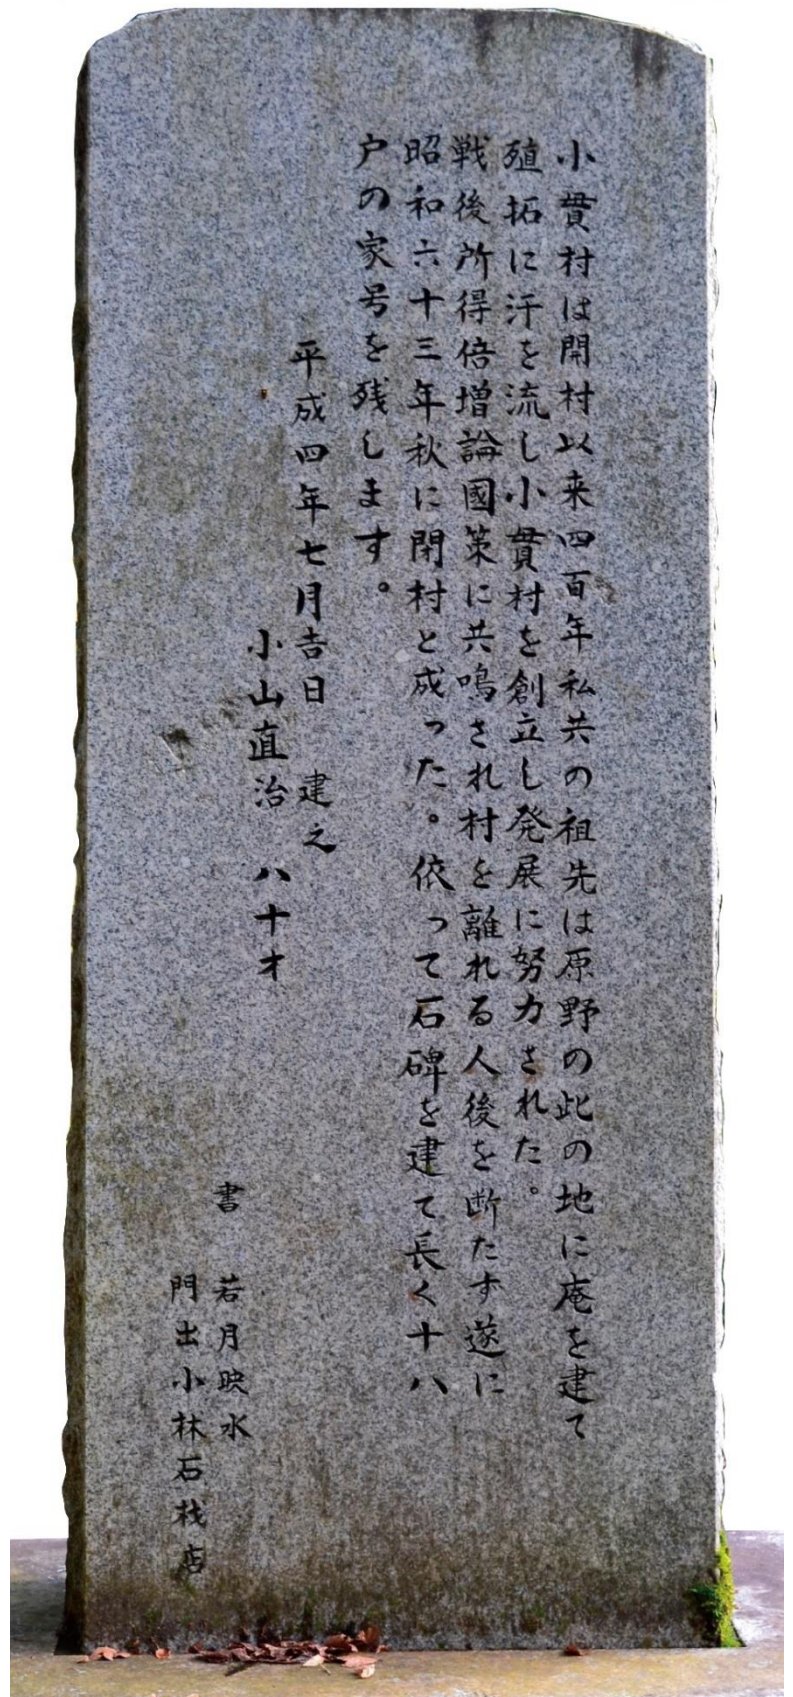 小貫村は開村以来四百年私共の祖先は原野の此の地に庵を建て
殖拓に汗を流し小貫村を創立し発展に努力された。
戦後所得倍増論國策に共鳴され村を離れる人後を断たず遂に
昭和六十三年秋に閉村と成った。依って石碑を建て長く十八
戸の家号を残します。
平成四年七月吉日　建之
小山直治　八十才
書　若月映水
門出小林石材店